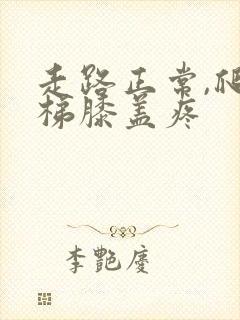 走路正常,爬
梯膝盖疼
李艷慶